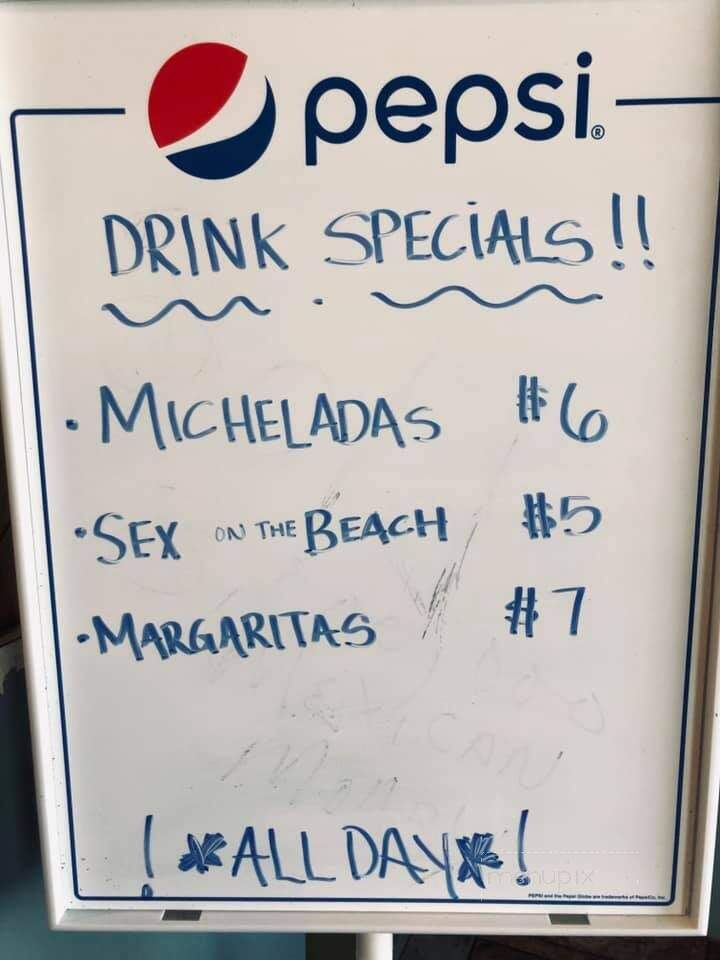 pepsi®
DRINK SPECIALS!!
• MICHELADAS $6
• SEX ON THE BEACH $5
• MARGARITAS $7
! *ALL DAY* !
menupix
PEPSI and the Pepsi Globe are trademarks of PepsiCo, Inc.